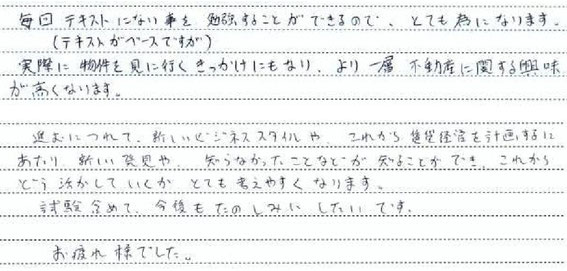 毎回 テキストにない事を 勉強することができるので、とても為になります。
(テキストがベースですが)
実際に 物件を見に行く きっかけにもなり、より一層 不動産に関する興味
が高くなります。
進むにつれて、新しいビジネススタイルや、これから 賃貸経営を計画するに
あたり 新しい発見や、知らなかったことなどが 知ることができ、これから
どう 活かしていくか とても考えやすくなります。
試験含めて、今後もたのしみに したいです。
お疲れ様でした。